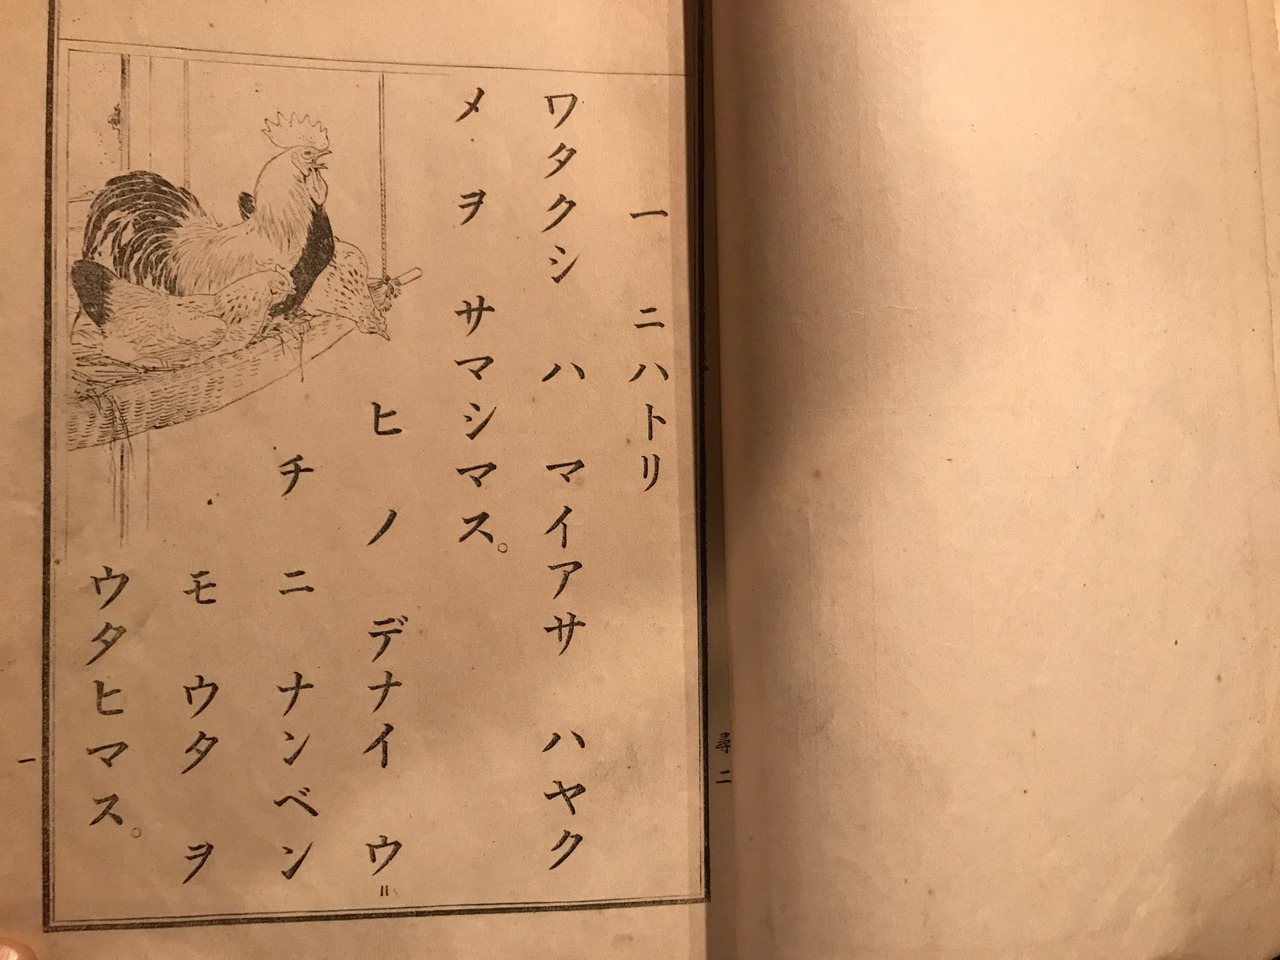 一 ニハトリ
ワタクシ ハ マイアサ ハヤク
メ ヲ サマシマス。
ヒ ノ デナイ ウ＝
チ ニ ナンベン
モ ウタ ヲ
ウタヒマス。
尋二
一